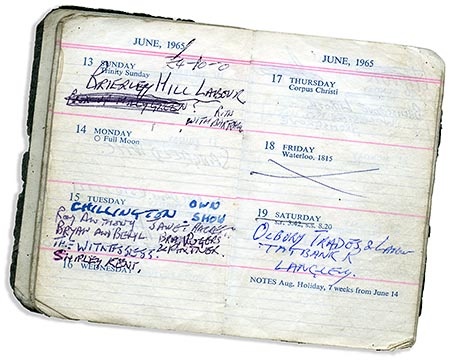 JUNE, 1965
13 SUNDAY £4-10-0
Trinity Sunday
BRIERLEY HILL LABOUR
WITH
14 MONDAY
Full Moon
15 TUESDAY
CHILLINGTON OWN
ROY ANTHONY JANET SHOW
BRYAN AND BERYL BRAN ROGERS
THE WITNESSESS.
SHIRLEY KENT.
16 WEDNESDAY
JUNE, 1965
17 THURSDAY
Corpus Christi
18 FRIDAY
Waterloo, 1815
19 SATURDAY
s.r. 3.42, s.s. 8.20
OLBURY TRADES, & LABOUR
THE BANK
LANGLEY.
NOTES Aug. Holiday, 7 weeks from June 14